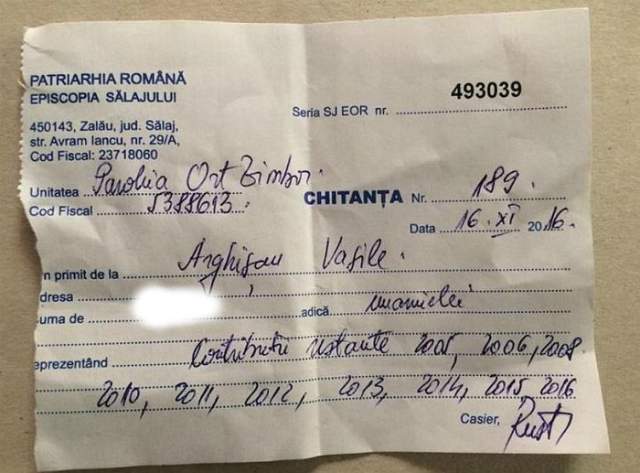 PATRIARHIA ROMÂNĂ
EPISCOPIA SĂLAJULUI
Seria SJ EOR nr. 493039
450143, Zalău, jud. Sălaj,
str. Avram Iancu, nr. 29/A,
Cod Fiscal: 23718060
Unitatea Parohia Ort Zimbor
Cod Fiscal 5388613
CHITANȚA Nr. 189
Data 16 XI 2016
n primit de la Arghișan Vasile
dresa
uma de adică
eprezentând Contribuții restante 2005, 2006, 2008
2010, 2011, 2012, 2013, 2014, 2015, 2016
Casier,